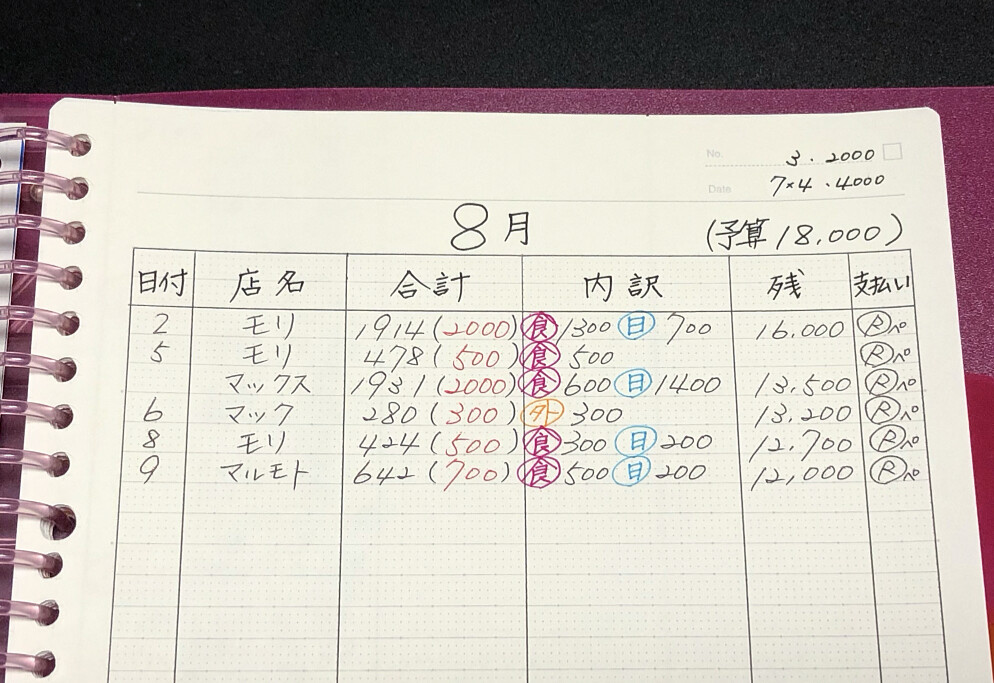 No. 3.2000
Date 7×4.4000
8月 (予算18,000)
日付 店名 合計 内訳 残 支払い
2 モリ 1914(2000) 食1300 日700 16,000 Rペ
5 モリ 478(500) 食500 Rペ
マックス 1931(2000) 食600 日1400 13,500 Rペ
6 マック 280(300) 外300 13,200 Rペ
8 モリ 424(500) 食300 日200 12,700 Rペ
9 マルモト 642(700) 食500 日200 12,000 Rペ